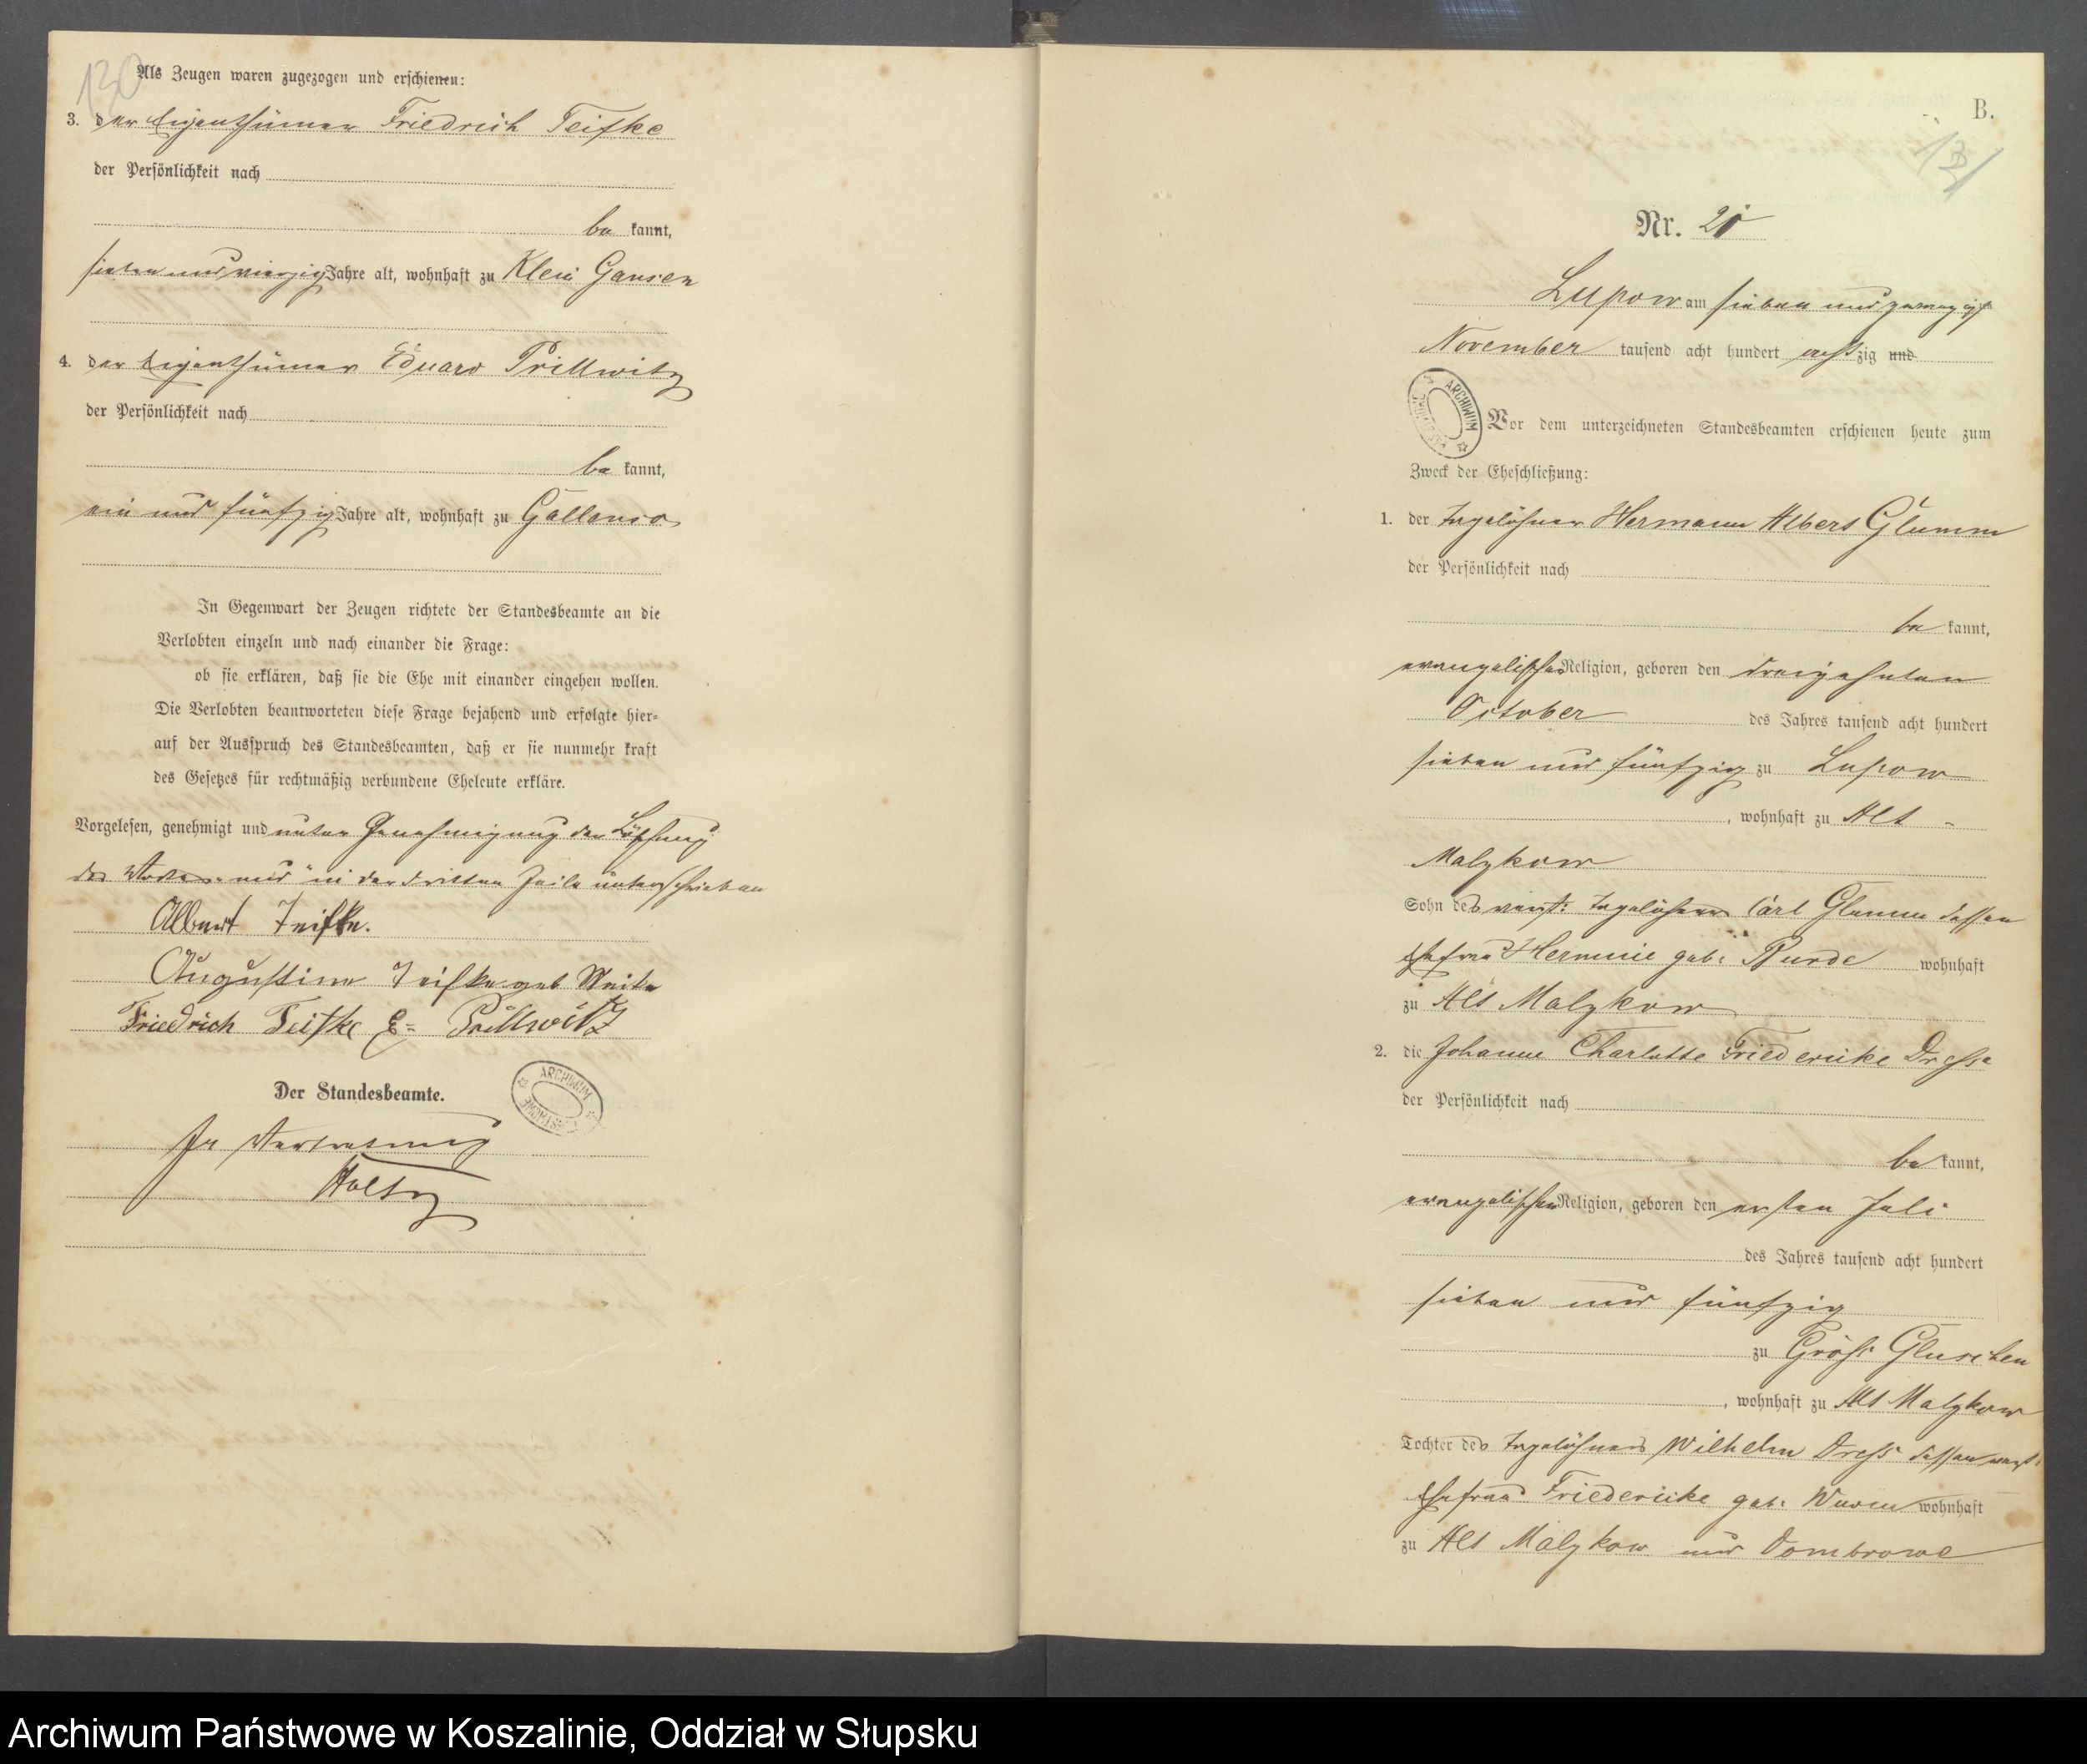 130
Als Zeugen waren zugezogen und erschienen:
3. der Eigenthümer Friedrich Teifke
der Persönlichkeit nach
be kannt,
sieben und vierzig Jahre alt, wohnhaft zu Klein Gansen
4. der Eigenthümer Eduard Prillwitz
der Persönlichkeit nach
be kannt,
ein und fünfzig Jahre alt, wohnhaft zu Gallensow
In Gegenwart der Zeugen richtete der Standesbeamte an die
Verlobten einzeln und nach einander die Frage:
ob sie erklären, daß sie die Ehe mit einander eingehen wollen.
Die Verlobten beantworteten diese Frage bejahend und erfolgte hier-
auf der Ausspruch des Standesbeamten, daß er sie nunmehr kraft
des Gesetzes für rechtmäßig verbundene Eheleute erkläre.
Vorgelesen, genehmigt und unter Genehmigung der Löschung
des Wortes "und" in der dritten Zeile unterschrieben
Albert Teifke.
Augustine Teifke geb
Friedrich Teifke E= Prillwitz
Der Standesbeamte.
In Vertretung
Holtz
ARCHIWUM
B.
131
Nr. 21
Lupow am sieben und zwanzigsten
November tausend acht hundert achtzig und
ARCHIWUM
Vor dem unterzeichneten Standesbeamten erschienen heute zum
Zweck der Eheschließung:
1. der Tagelöhner Hermann Albert Glumm
der Persönlichkeit nach
be kannt,
evangelischer Religion, geboren den dreizehnten
October des Jahres tausend acht hundert
sieben und fünfzig zu Lupow
, wohnhaft zu Alt-
Malzkow
Sohn des verst: Tagelöhners Carl Glumm dessen
Ehefrau Hermine geb: wohnhaft
zu Alt Malzkow
2. die Johanne Charlotte Friedericke Dress
der Persönlichkeit nach
be kannt,
evangelischer Religion, geboren den ersten Juli
des Jahres tausend acht hundert
sieben und fünfzig
zu Groß Gluschen
, wohnhaft zu Alt Malzkow
Tochter des Tagelöhners Wilhelm Dress dessen verst:
Ehefrau Friedericke geb: wohnhaft
zu Alt Malzkow und Dombrowe
Archiwum Państwowe w Koszalinie, Oddział w Słupsku